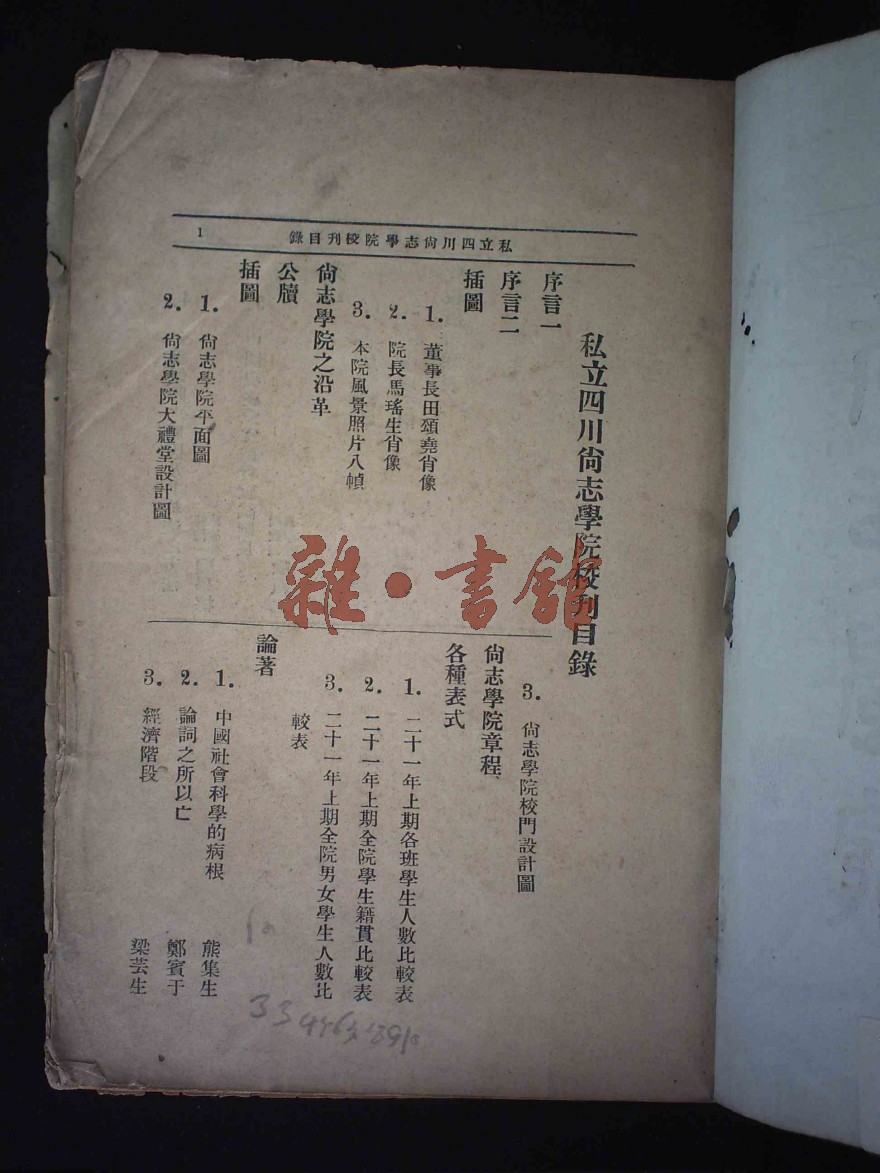 私立四川尙志學院校刊目錄
1
私立四川尙志學院校刊目錄
序言一
序言二
插圖
1. 董事長田頌堯肖像
2. 院長馬瑤生肖像
3. 本院風景照片八幀
尙志學院之沿革
公牘
插圖
1. 尙志學院平面圖
2. 尙志學院大禮堂設計圖
3. 尙志學院校門設計圖
尙志學院章程
各種表式
1. 二十一年上期各班學生人數比較表
2. 二十一年上期全院學生籍貫比較表
3. 二十一年上期全院男女學生人數比
較表
論著
1. 中國社會科學的病根 熊集生
2. 論詞之所以亡 鄭賓于
3. 經濟階段 梁芸生
雜·書館